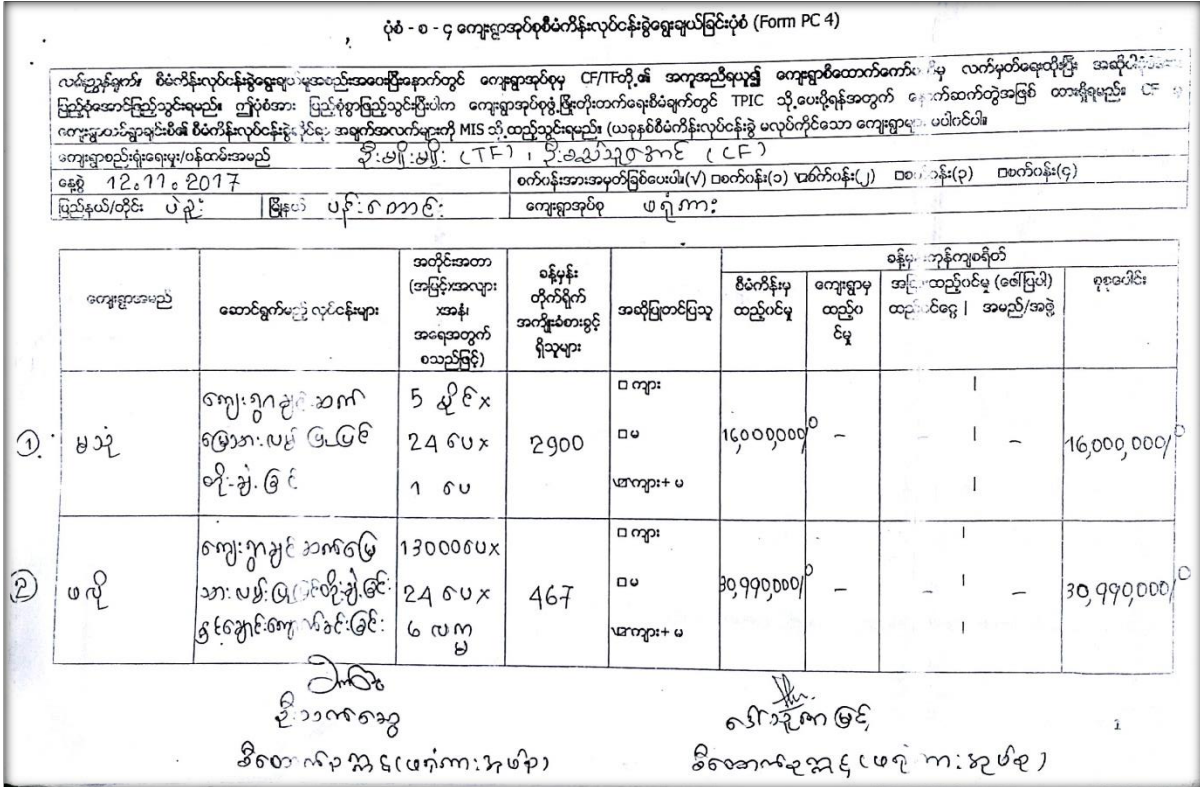 ပုံစံ - စ - ၄ ကျေးရွာအုပ်စုစီမံကိန်းလုပ်ငန်းခွဲရွေးချယ်ခြင်းပုံစံ (Form PC 4)
လမ်းညွှန်ချက်။ စီမံကိန်းလုပ်ငန်းခွဲရွေးချယ်မှုအစည်းအဝေးပြီးနောက်တွင် ကျေးရွာအုပ်စုမှ CF/TFတို့၏ အကူအညီရယူ၍ ကျေးရွာစီထောက်ကော်မတီမှ လက်မှတ်ရေးထိုးပြီး အဆိုပါပုံစံအား
ပြည့်စုံအောင်ဖြည့်သွင်းရမည်။ ဤပုံစံအား ပြည့်စုံစွာဖြည့်သွင်းပြီးပါက ကျေးရွာအုပ်စုဖွံ့ဖြိုးတက်ရေးစီမံချက်တွင် TPIC သို့ပေးပို့ရန်အတွက် နောက်ဆက်တွဲအဖြစ် ထားရှိရမည်။ CF မှ
အချက်အလက်များကို MIS သို့ထည့်သွင်းရမည်။ (ယခုနှစ်စီမံကိန်းလုပ်ငန်းခွဲ မလုပ်ကိုင်သော ကျေးရွာများ မပါဝင်ပါ။
ကျေးရွာစည်းရုံးရေးမှူး/ဝန်ထမ်းအမည် ဦးမျိုးမျိုး (TF) ၊ (CF)
နေ့စွဲ 12.11.2017 စက်ဝန်းအားအမှတ်ခြစ်ပေးပါ။(√) □စက်ဝန်း(၁) ☑စက်ဝန်း(၂) □စက်ဝန်း(၃) □စက်ဝန်း(၄)
ပြည်နယ်/တိုင်း ပဲခူး မြို့နယ် ပန်းတောင်း ကျေးရွာအုပ်စု ဖရုံကား
ကျေးရွာအမည် ဆောင်ရွက်မည့် လုပ်ငန်းများ
အတိုင်းအတာ
(အမြင့်xအလျား
xအနံ၊
အရေအတွက်
စသည်ဖြင့်)
ခန့်မှန်း
တိုက်ရိုက်
အကျိုးခံစားခွင့်
ရှိသူများ
အဆိုပြုတင်ပြသူ
ခန့်မှန်းကုန်ကျစရိတ်
စီမံကိန်းမှ
ထည့်ဝင်မှု
ကျေးရွာမှ
ထည့်ဝ
င်မှု
အခြားထည့်ဝင်မှု (ဖေါ်ပြပါ)
ထည့်ဝင်ငွေ | အမည်/အဖွဲ့
စုစုပေါင်း
① မသုံ
ကျေးရွာချင်းဆက်
မြေသားလမ်း ပြုပြင်
တိုးချဲ့ခြင်
5 မိုင် x
24 ပေ x
1 ပေ
2900
□ ကျား
□ မ
☑ ကျား + မ
16,000,000/ – – 16,000,000/
② ဖလို
ကျေးရွာချင်ဆက်မြေ
သားလမ်းပြုပြင်တိုးချဲ့ခြင်း
နှင့်ချောင်းကျောက်ခင်းခြင်း
13000ပေx
24 ပေ x
6 လက္မ
467
□ ကျား
□ မ
☑ ကျား + မ
30,990,000/ – – 30,990,000/
ဦးသက်ဆွေ
စီထောက်ဥက္ကဋ္ဌ(ဖရုံကားအုပ်စု)
ဒေါ်သူဇာမြင့်
စီထောက်ဥက္ကဋ္ဌ(ဖရုံကားအုပ်စု)
1